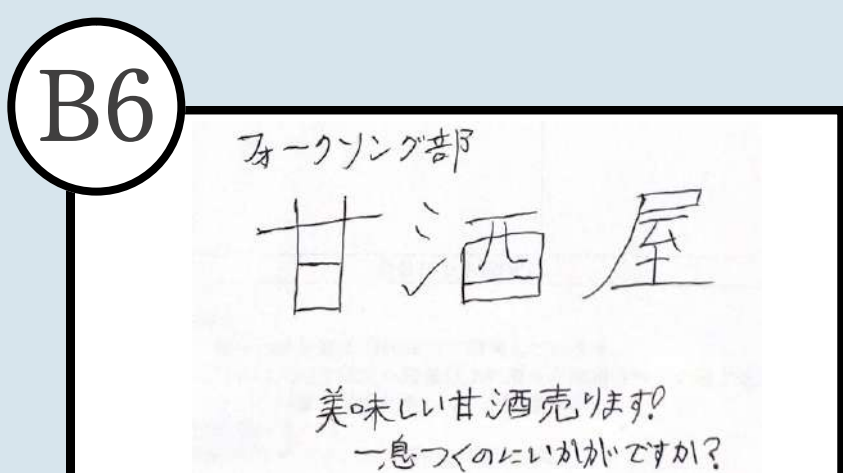 B6
フォークソング部
甘酒屋
美味しい甘酒売ります!
一息つくのにいかがですか?